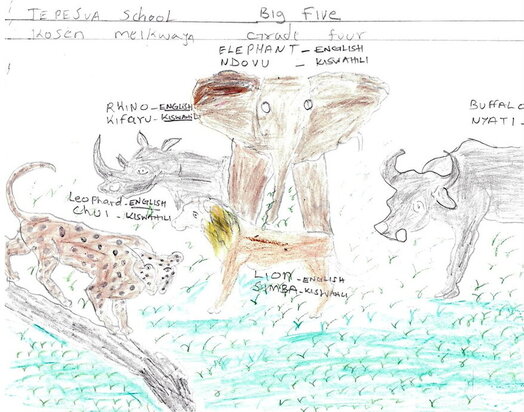 TEPESUA School Big Five
Kosen meikwaya Grade fuur
ELEPHANT - ENGLISH
NDOVU - KISWAHILI
RHINO - ENGLISH
Kifaru - KISWAHILI
BUFFALO
NYATI -
Leophard - ENGLISH
Chui - KISWAHILI
LION - ENGLISH
SIMBA - KISWAHILI